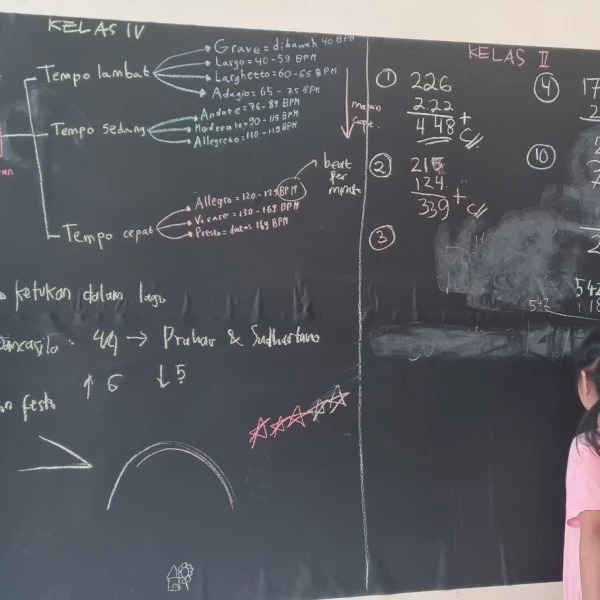 KELAS IV
Tempo lambat
Grave = dibawah 40 BPM
Largo = 40 - 59 BPM
Larghetto = 60 - 65 BPM
Adagio = 65 - 75 BPM
Tempo sedang
Andate = 76 - 89 BPM
Moderato = 90 - 115 BPM
Allegreto = 110 - 119 BPM
Tempo cepat
Allegro = 120 - 129 BPM
Vivace = 130 - 169 BPM
Presto = diatas 169 BPM
makin
cepat.
beat
per
minute
ketukan dalam lagu
4/4 → Prahar & Sudhartono
↑ 6 ↓ 5
KELAS II
1
226
222 +
448
2
215
124 +
339
3
4
17
10
542
542